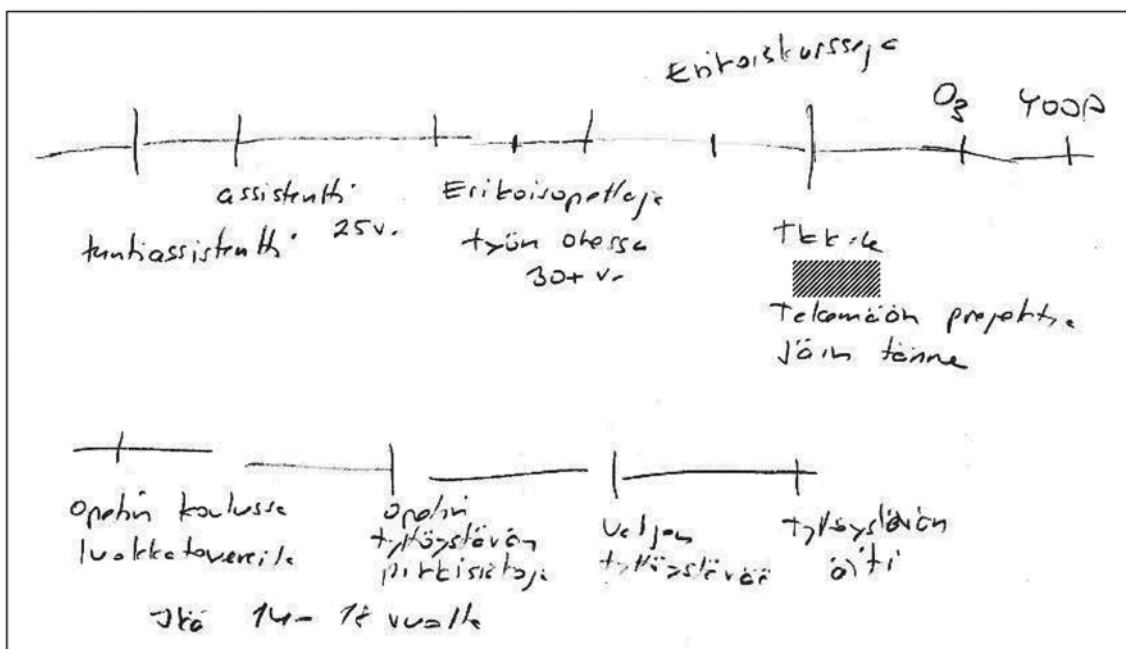 Erikoiskursseja
O3 YOOP
assistentti
25v.
tuntiassistentti
Erikoisopettaja
työn ohessa
30+ v.
TKK:lle
Tekemään projektia
Jäin tänne
Opetin koulussa
luokkatovereita
Ikä 14-18 vuotta
Opetin
tyttöystävän
pikkusiskoja
Veljen
tyttöystävää
tyttöystävän
äiti